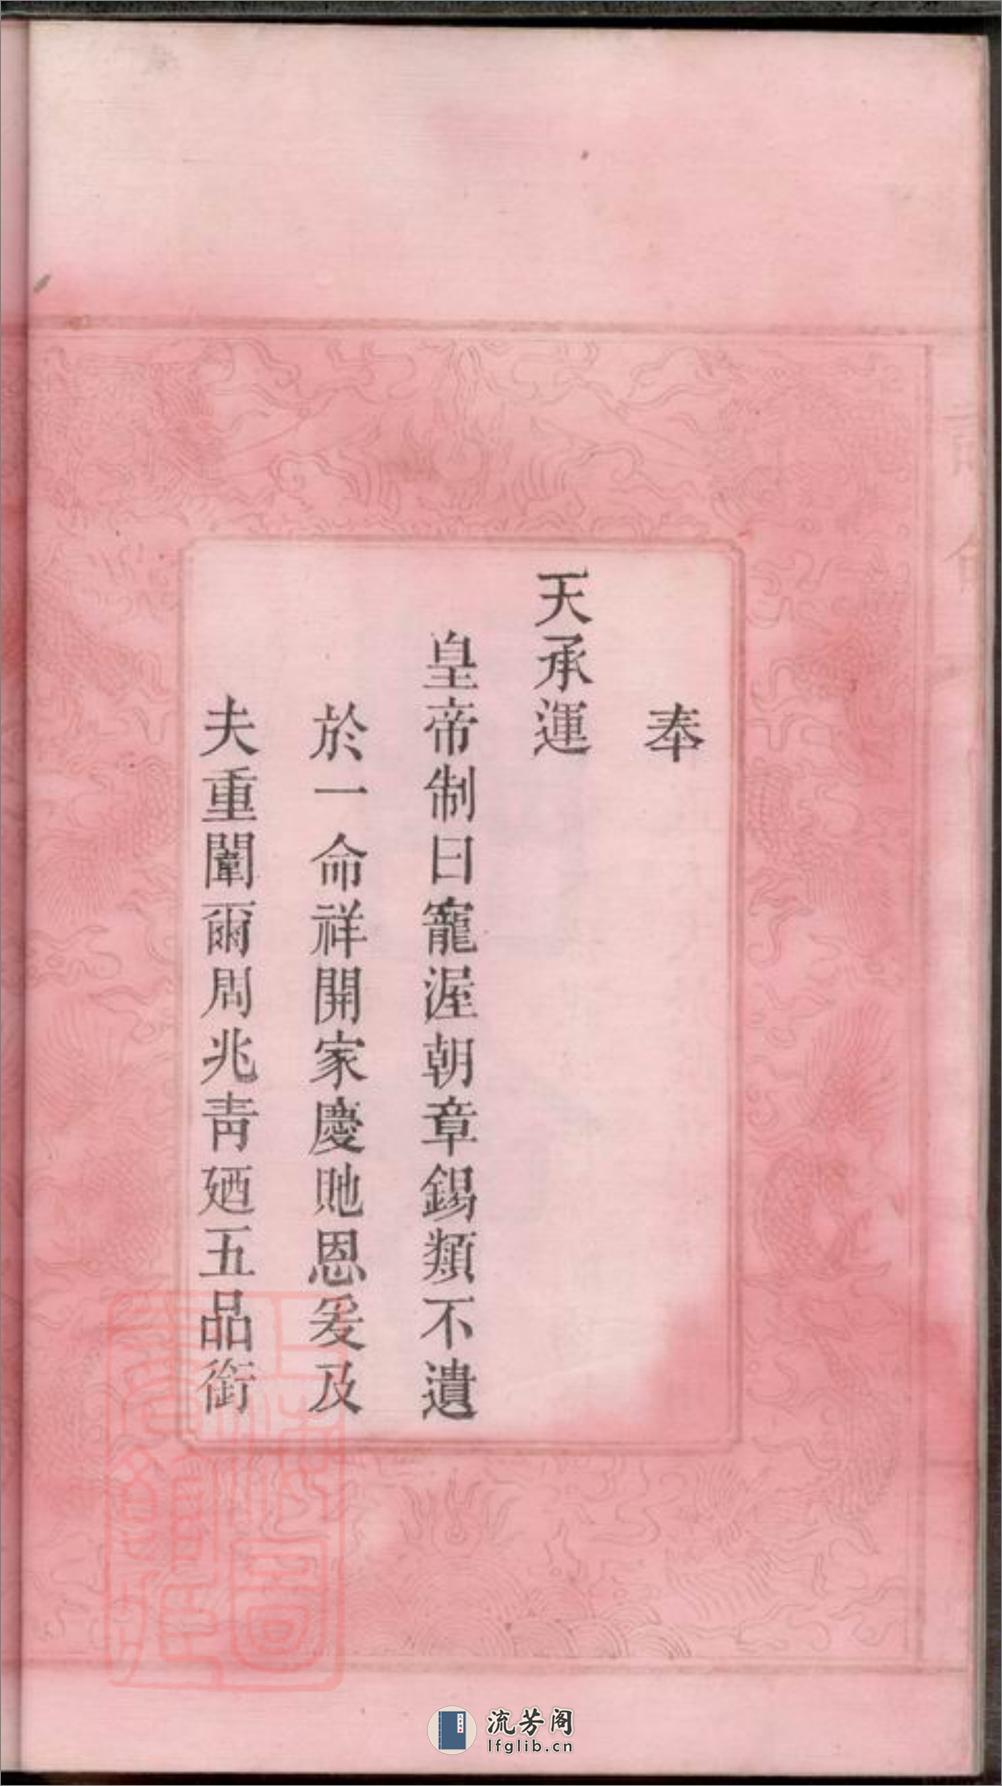 奉
天承運
皇帝制曰寵渥朝章錫類不遺
於一命祥開家慶貤恩爰及
夫重闈爾周兆青廼五品銜
流芳阁
lfglib.cn